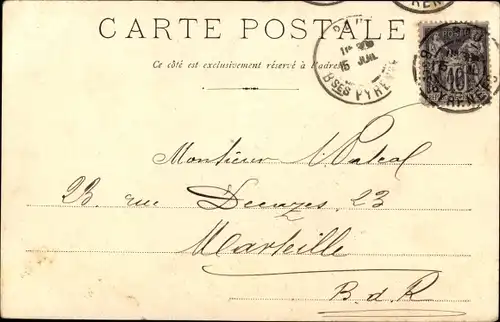 CARTE POSTALE
Ce côté est exclusivement réservé à l'adresse
PAU
15 JUIL
BSES PYRENEES
POSTES
10
PYRENEES
Monsieur
23 rue Decazes 23
Marseille
B. d. R